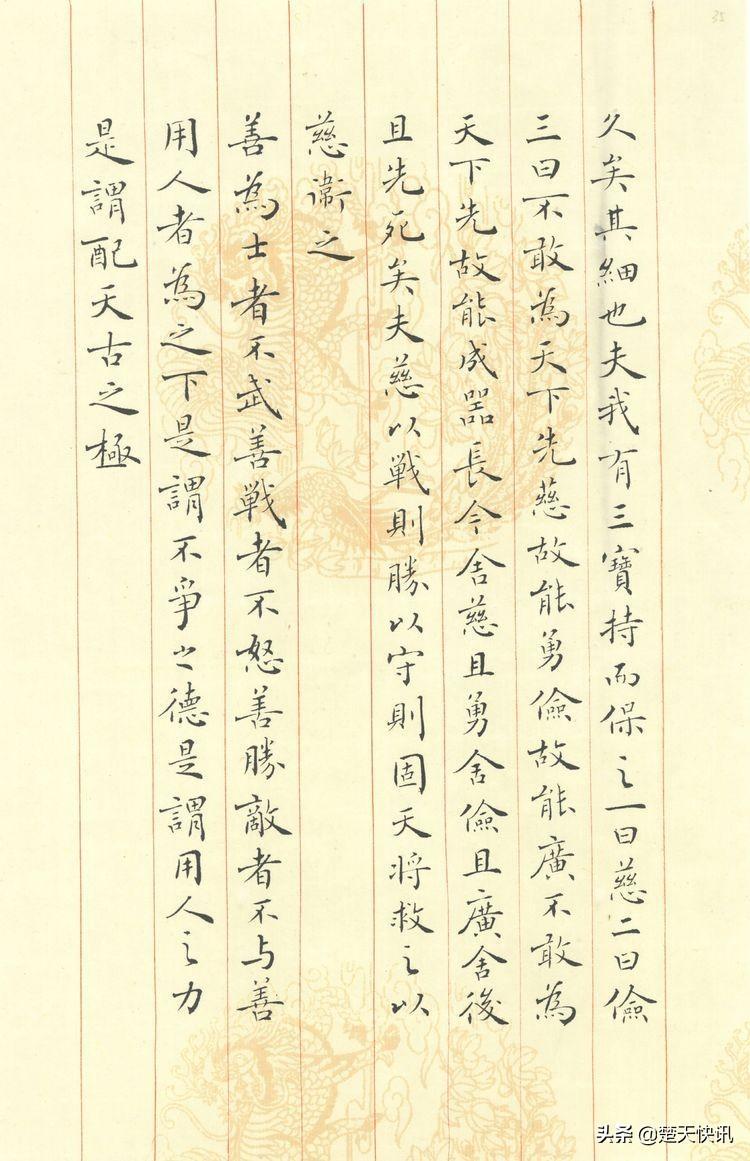 久矣其細也夫我有三寶持而保之一曰慈二曰儉
三曰不敢為天下先慈故能勇儉故能廣不敢為
天下先故能成器長今舍慈且勇舍儉且廣舍後
且先死矣夫慈以戰則勝以守則固天將救之以
慈衛之
善為士者不武善戰者不怒善勝敵者不与善
用人者為之下是謂不爭之德是謂用人之力
是謂配天古之極
35
头条 @楚天快讯